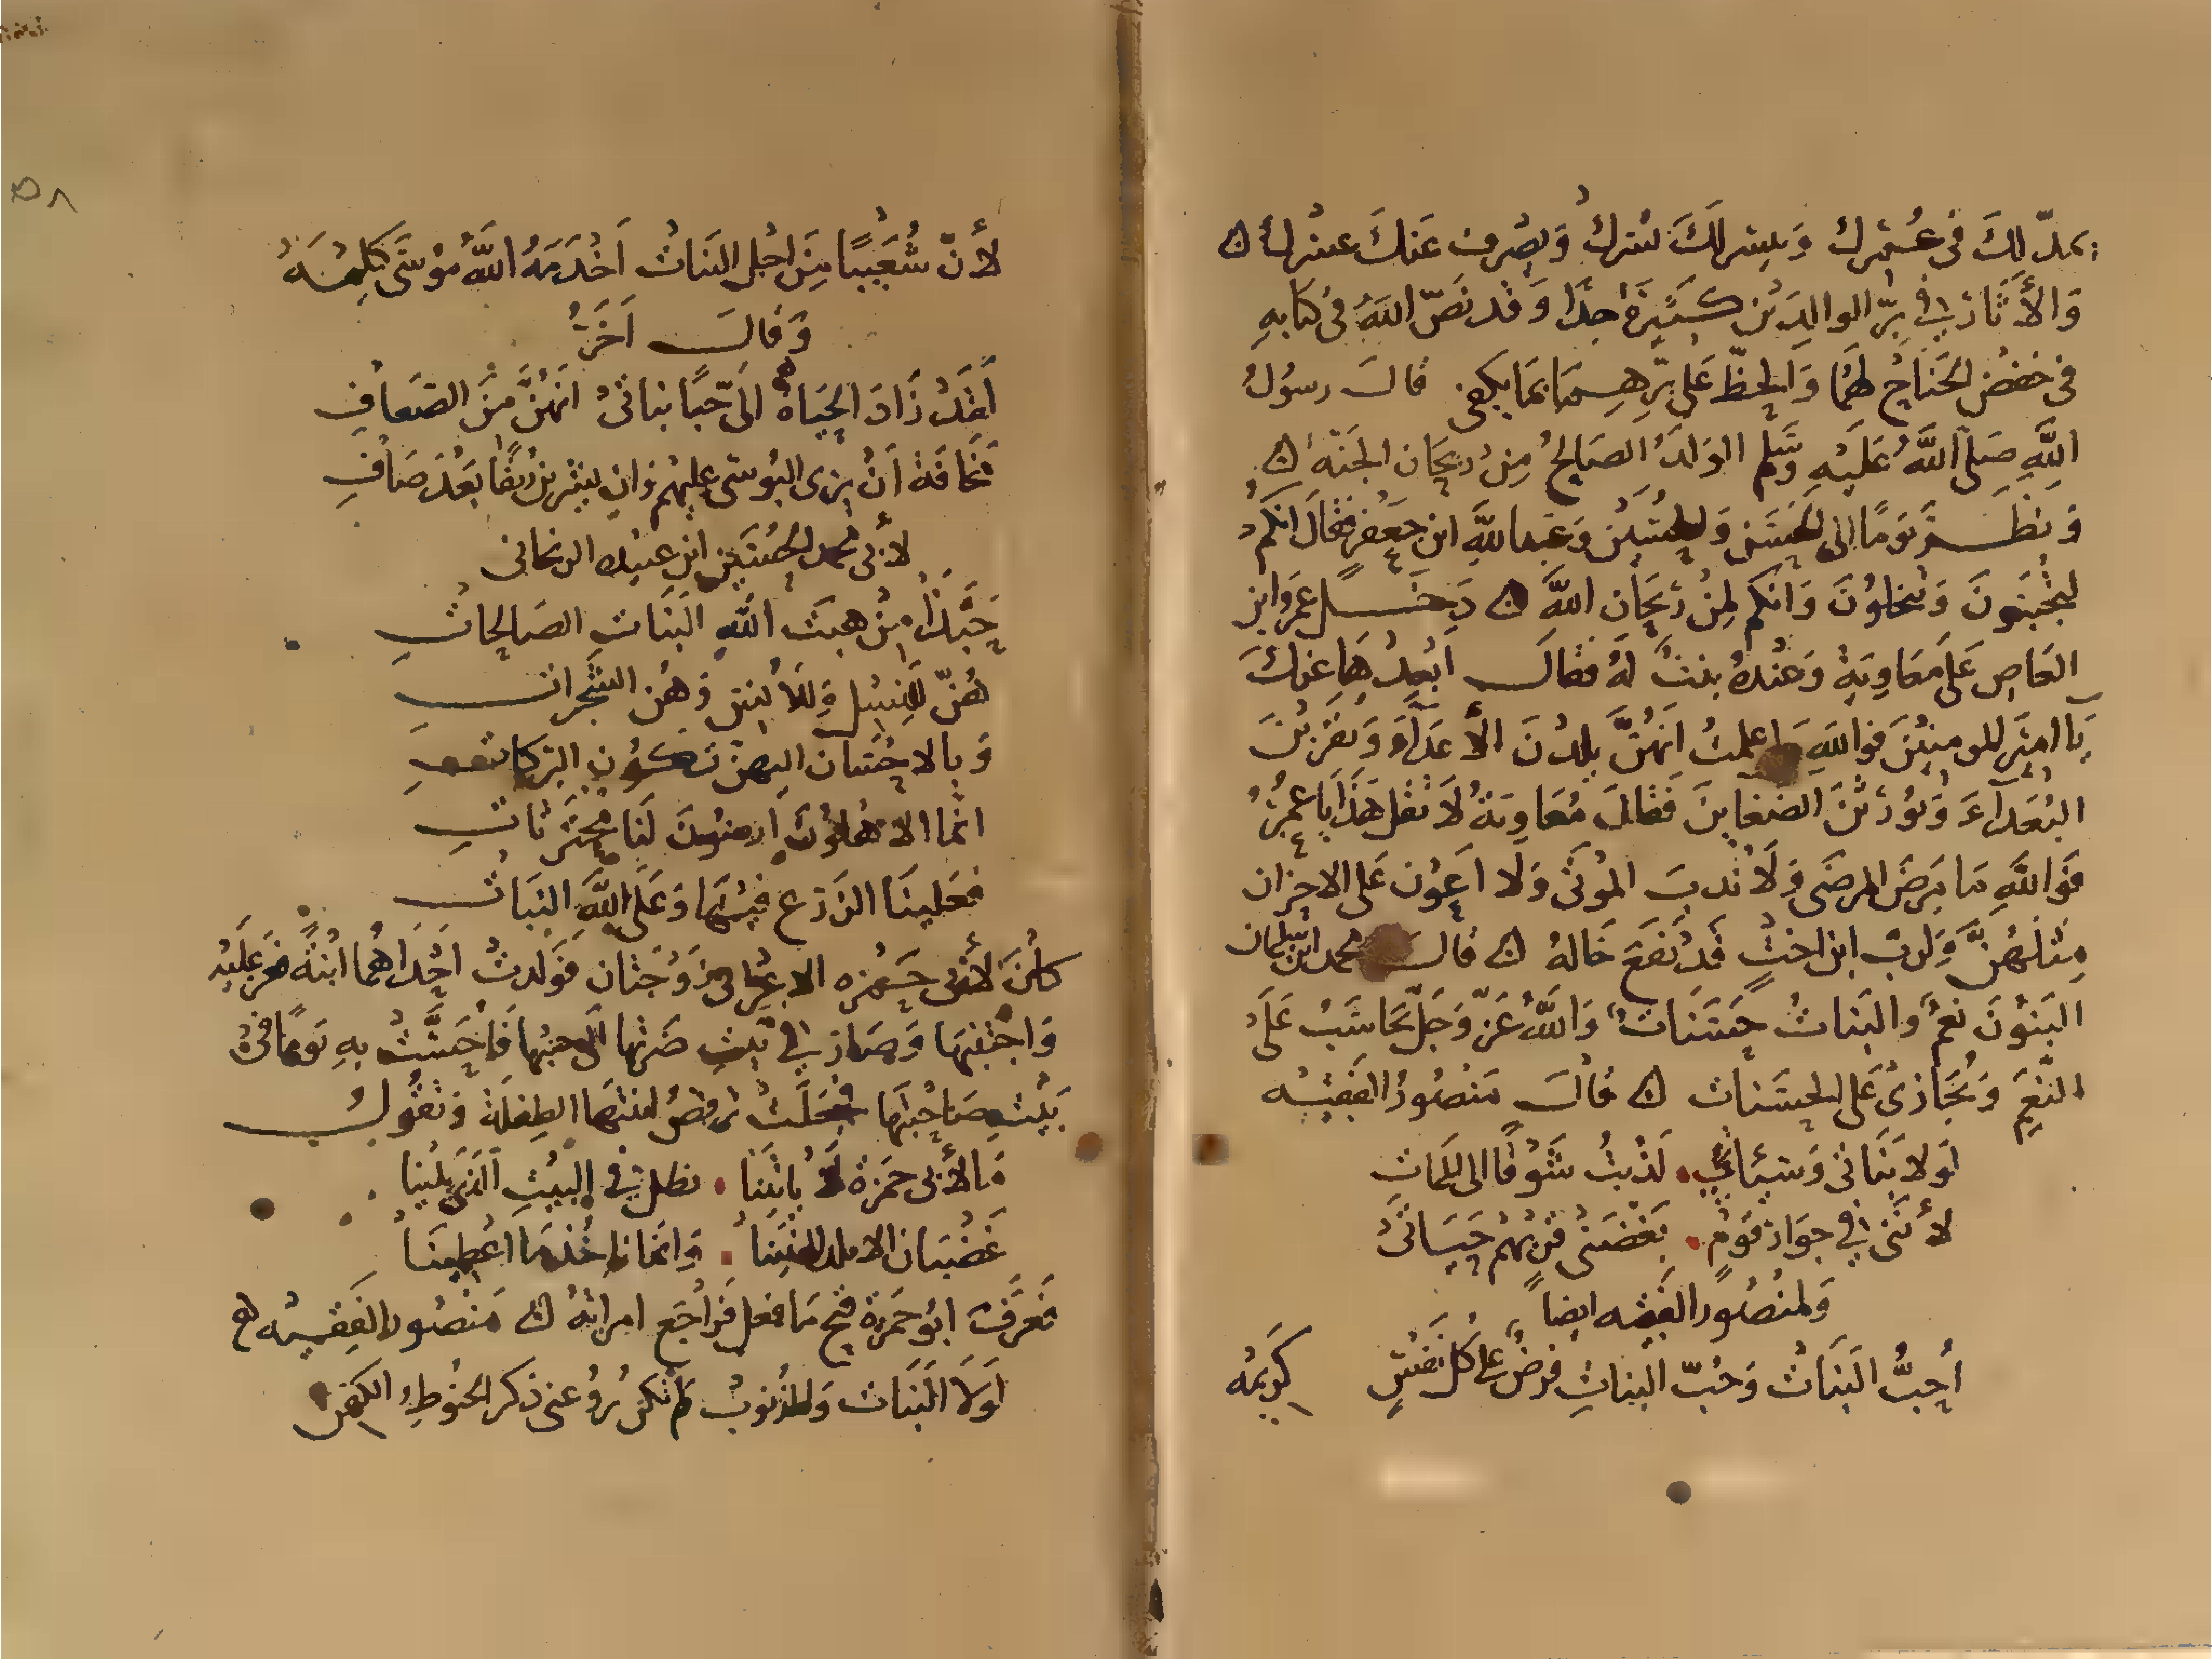 يمدّ لكَ في عُمْرك وَييسر لكَ يُسْرك وَيصْرف عَنكَ عسْرك ه
وَالأثَار في بِرّ الوالِدَيْن كَثيرَة جدًا وَقد نَصّ اللهَ في كتابهِ
في خفض الجَناح لهمَا وَالحظّ عَلى بِرّهِمَا بمَا يكفى قالَ رسوُل
اللهِ صَلى اللهُ عَليْهِ وَسَلم الوَلَدُ الصَالحُ مِنْ رَيحَان الجَنّه ه
وَنظَر يَومًا الى الحَسَن وَالحُسَيْن وَعَبد اللهِ ابن جَعْفر فقالَ انكم
لتُجَبّنونَ وَتُبخلوُنَ وَانكم لمِنْ رَيحَان الله ه دَخَل عمرَو ابن
العَاص عَلى مَعَاويَة وَعنْدهُ بنتٌ لهُ فقالَ أبْعِدْهَا عنكَ
يَا امَير المومنيْنَ فوَاللهِ مَا علمتُ انهُنَّ يلدْنَ الأعدَآءَ وَيُقَرّبْنَ
البُعَدآءَ وَيُورثْنَ الضغاينَ فَقالَ مُعَاويَةُ لاَ تقل هَذَا يَا عمرُو
فوَاللهِ مَا مَرضَ المرضَى وَلاَ نَدبَ الموْتَى وَلا اَعوَن عَلى الاحزان
مِثلهُنَّ وَلربّ ابن اختٍ قَدْ نَفَعَ خَالهُ ه قالَ محمد ابن سليمان
البَنوُنَ نِعَمٌ وَالبَناتُ حَسَنَاتٌ وَاللهُ عَزّ وَجَلّ يحَاسَبُ عَلى
النّعَم وَيُجَازى عَلى الحسَنات ه قالَ مَنْصُورُ الفَقيْه
لَولا بَنَاتى وَسَيئاتي لَذبتُ شَوْقًا الى الممَات
لأننى في جوَار قَومٍ بَغّضَنى قربُهُمْ حَيَاتى
وَلمنْصُور الفَقيْه ايضاً
اُحِبُّ البَنَاتْ وَحُبّ البناتِ فرضٌ عَلى كل نَفْسٍ كريمَه
لأنّ شُعَيْبًا مِنَ اجْل البَنَاتْ اَخْدَمَهُ اللهُ مُوسَى كَلِيْمَهْ
وَقالَ اَخَرُ
لَقَدْ زَادَ الحَيَاة الَى حُبًا بناتى انَهُنَّ مِنَ الضعَافِ
مَخَافَة أنْ يرَى البُوسَى عليهم وَان يشْربْنَ رَنقًا بَعْدَ صَافِ
لأبى محمد الحُسَيْن ابن عبيد الريحانى
حَبّذَا مِنْ هبَت اللهِ البَنَاتِ الصَالحَاتِ
هُنّ للنسْل وَللأنس وَهُن الشجَرَاتِ
وَبالاحْسَان اليهنّ تكوُن البركاتِ
انمَا الاهلوُنَ ارضوُنَ لنَا محترَثَاتِ
فعَلينَا الزرع فيْهَا وَعَلى اللهِ النبَاتِ
كانَ لأبى حَمْزه الاعْرَابى زَوْجَتان فوَلدتْ اَحْدَاهُما ابْنةً فعز عَليْهِ
وَاجتنبهَا وَصَار في بَيْتِ ضَرتها الى جنبهَا فأحَسَّتْ بهِ يَومًا فى
بَيْتِ صَاحبَتِها فجَعَلتْ ترقصُ ابنتهَا الطِفلَة وَتقُولُ
مَا لأبى حَمزة لاَ يَاتيْنَا يظل في البيْتِ الّذى يَلينا
غَضْبَان الا نلد البَنِيْنَا وَانمَا ناخذ مَا اعْطينَا
فعَرفَ ابوُ حَمزة قبح مَا فعل فرَاجَع امراته ه مَنْصُور الفَقِيْه
لَولاَ البَنَات وَالذنوبُ لم تكن تروُعنى ذكر الحنوُطِ وَالكفن
٥٨